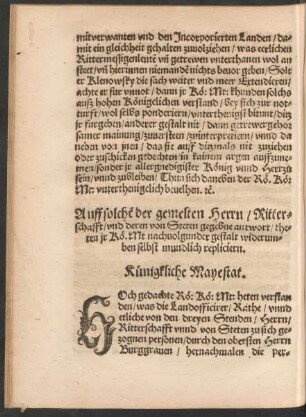 mitverwanten vnd den Incorporierten Landen / da-
mit ein gleichheit gehalten zuuolziehen / was eerlichen
Rittermessigenleutẽ vñ getrewen vnterthanen wol an
stett / vñ hierinnen niemandẽ nichts beuor geben / Solt
er Klenowsky die sach weiter vnd meer Extendiern /
achte er für vnnot / dann je Kö: Mt: khunden solchs
auß hohen Königelichen verstand / bey sich zur not-
turfft / wol selbs ponderiern / vnterthenigist bittent / ditz
je fürgeben / anderer gestalt nit / dann getrewer gehor
samer mainung / zuuersteen / zuinterpretiern / vnnd da
neben von jnen / das sie auff dizmals nit zuziehen
oder zuschicken gedechten / in kainem argen auffzune-
men / sonder je allergnedigister Könıg vnnd Herr zu
sein / vnnd zubleiben / Thun sich daneben der Rö. Kö:
Mt: vnterthenigelich beuelhen. ꝛc.
Auff solchẽ der gemelten Herrn / Ritter-
schafft / vnd deren von Steten gegebne antwort / the-
ten je Kö. Mt nachuolgunder gestalt widerum-
ben selbst mundlich replicieren.
Künigkliche Mayestat.
Hoch gedachte Rö: Kö: Mt: heten verstan
den / was die Landofficirer / Räthe / vnnd
etliche von den dreyen Stenden / Herrn /
Ritterschafft vnnd von Steten zu sich ge-
zognen persönen / durch den obersten Herrn
Burggrauen / hernachmalen die per-